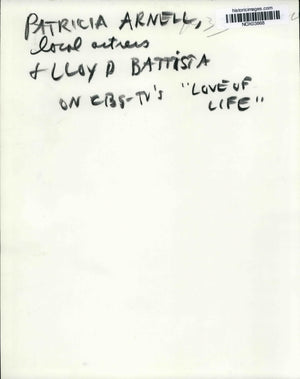 historicimages.com
PATRICIA ARNELL,
local actress
+ LLOYD BATTISTA
ON CBS-TV's "LOVE OF
LIFE"